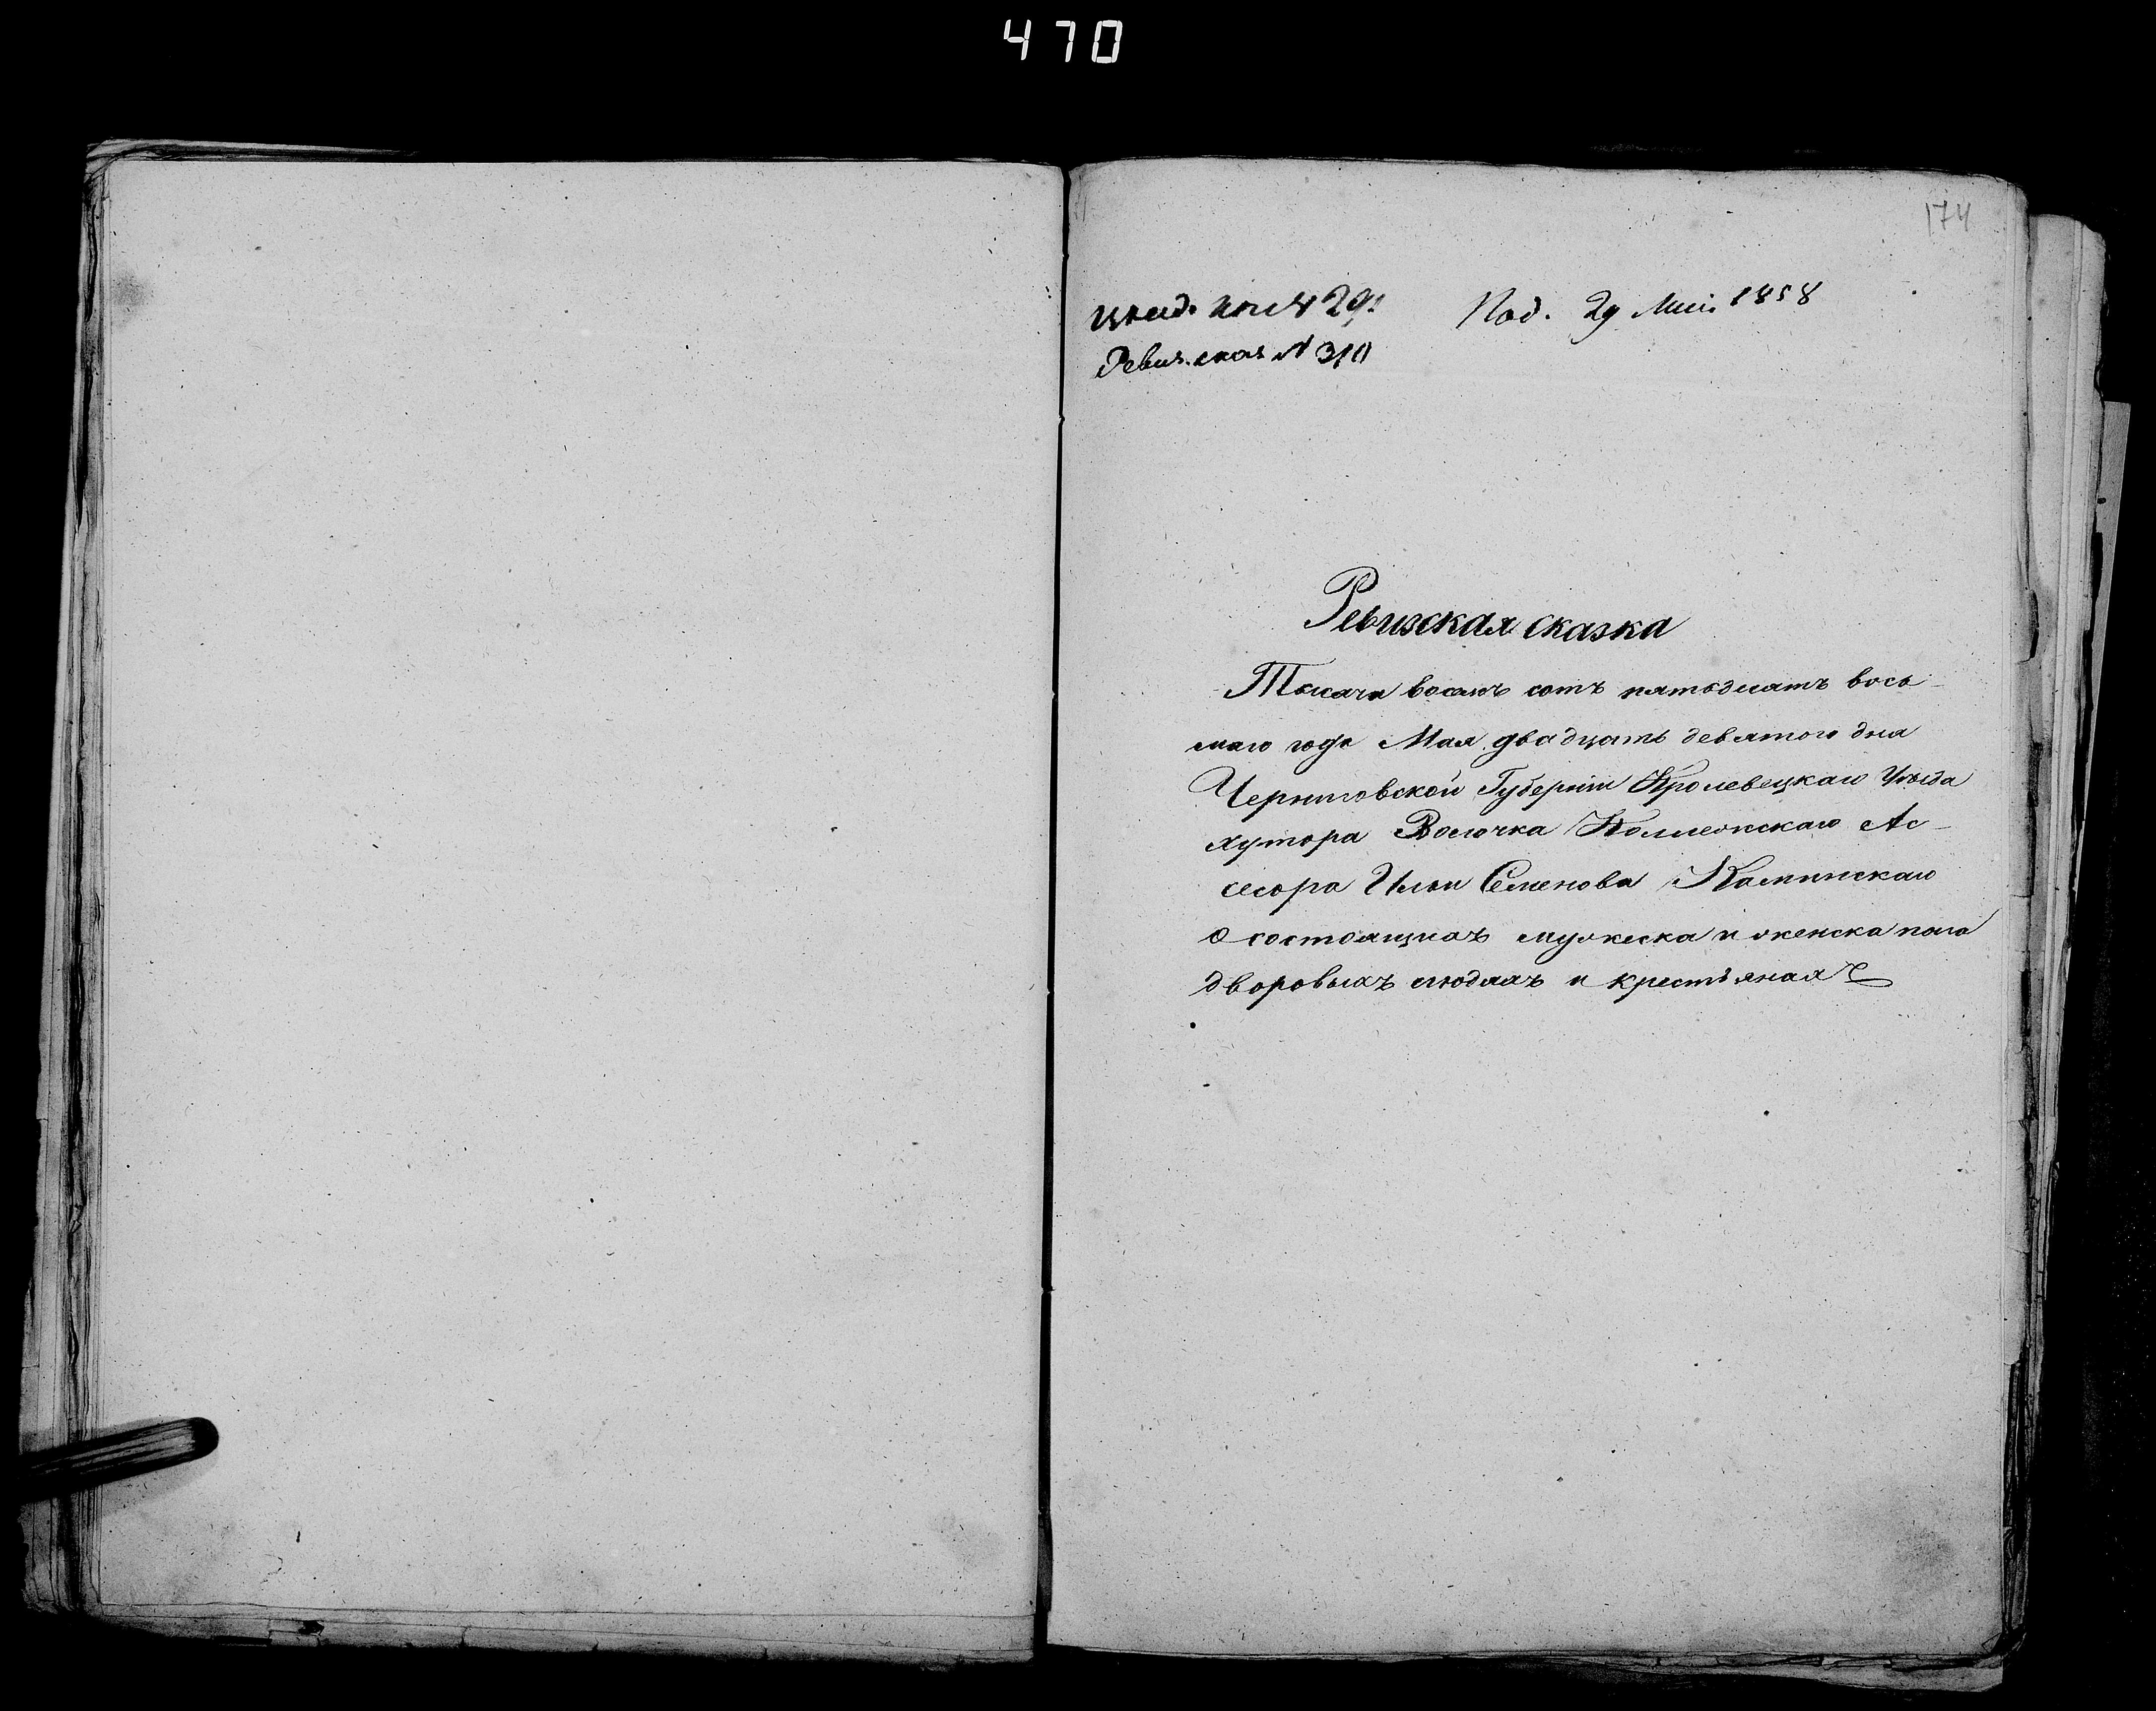 470
174
Под. 29 Мая 1858
Ревиз. сказ № 310
Ревизская сказка
Тысяча восемь сотъ пятьдесятъ вось-
маго года Мая двадцать девятого дня
Черниговской Губерніи Кролевецкаго Уезда
хутора Волочка Колежскаго Ас-
сесора Ильи Семенова Каминскаго
о состоящихъ мужеска и женска пола
дворовыхъ людяхъ и крестьянахъ